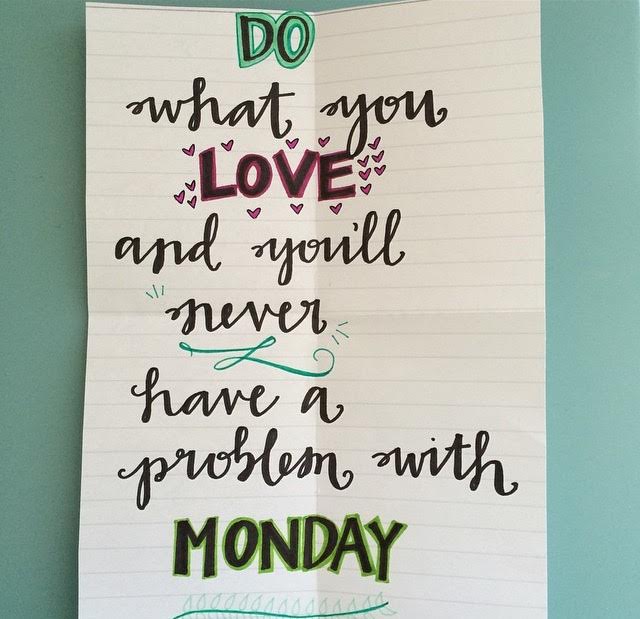 DO
what you
LOVE
and you'll
never
have a
problem with
MONDAY